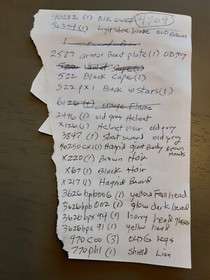 40232 (1) Blk owl
(1) Light stone Wide Old Brown
2587 armor Breast plate (1) OLD gry
522 Black Cape (1)
522px1 Black w stars (1)
2446 (1) old grey Helmet
(1) Helmet visor old gry
3847 (1) Short sword old gry
40250cx1 (1) Hagrid giant Body brown Hands
X220 (1) Brown Hair
X67 (1) Black Hair
X217 (1) Hagrid Beard
3626bpb006 (1) yellow Fem head
3626bpb002 (1) glow dark head
3626bpx94 (1) harry head glasses
3626bpx91 (1) yellow head
970c00 (3) OLD G legs
770ph1 (1) Shield Lion